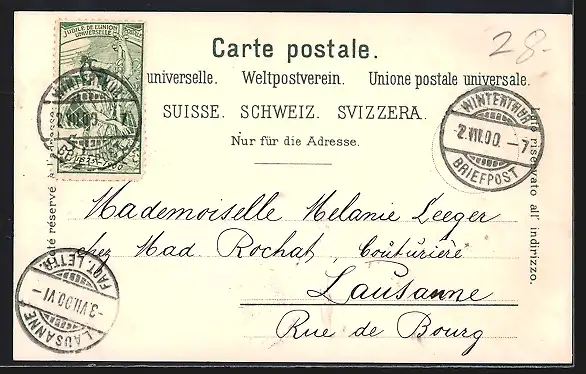 JUBILÉ DE L'UNION
UNIVERSELLE
28.-
Carte postale.
universelle. Weltpostverein. Unione postale universale.
SUISSE. SCHWEIZ. SVIZZERA.
Nur für die Adresse.
WINTERTHUR
2.VII.00.-7
BRIEFPOST
WINTERTHUR
2.VII.00.-7
Côté réservé à l'adresse.
Lato riservato all' indirizzo.
Mademoiselle Melanie Leeger
chez Mad. Rochat, Couturière
Lausanne
Rue de Bourg
FACT. LETTR.
-3.VII.00.VI-
LAUSANNE